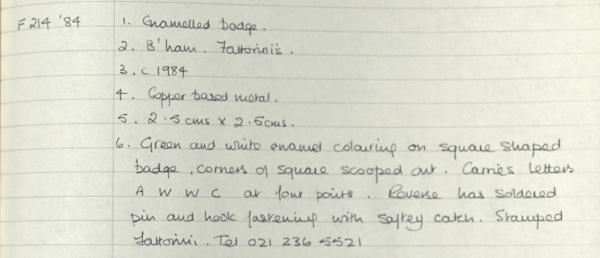 F 214 '84
1. Enamelled badge.
2. B'ham. Fattorini's.
3. c 1984
4. Copper based metal.
5. 2.5 cms x 2.5 cms.
6. Green and white enamel colouring on square shaped
badge, corners of square scooped out. Carries letters
A W W C at four points. Reverse has soldered
pin and hook fastening with saftey catch. Stamped
Fattorini. Tel 021 236 5521